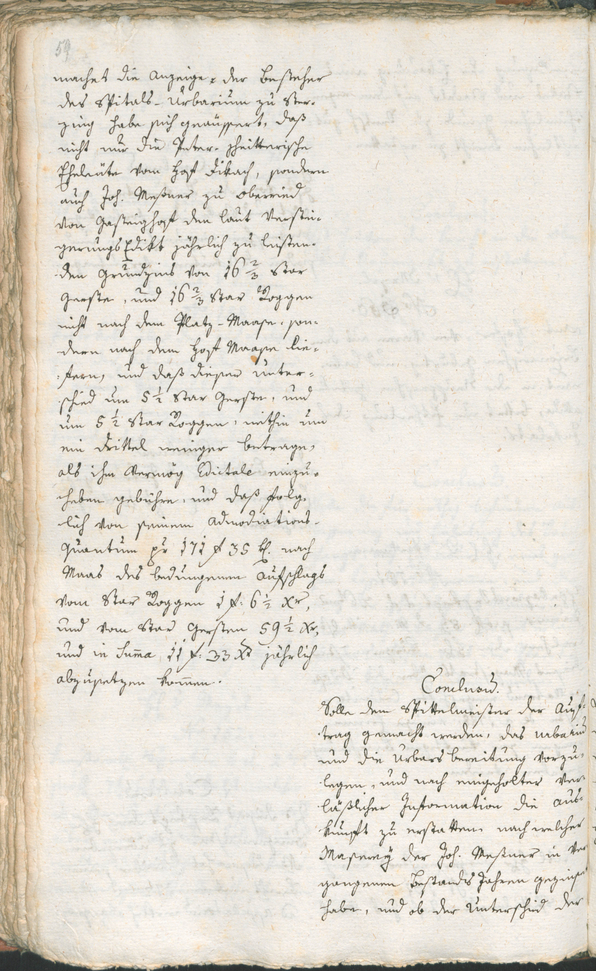 59
machet die Anzeige, der Besteher
des Spitals-Urbarium zu Ster-
zing habe sich geäussert, daß
nicht nur die Peter-
Eheleute vom Hof, sondern
auch Joh. Meßner zu Oberried
von Gasteighof den laut Verstei-
gerungs Edikt jährlich zu leisten-
den Grundzins von 16 2/3 Star
Gerste, und 16 2/3 Star Roggen
nicht nach dem Platz-Maase, son-
dern nach dem Hof Maase lie-
fern, und daß dieser Unter-
schied um 5 1/2 Star Gerste, und
um 5 1/2 Star Roggen, mithin um
ein Drittel weniger betrage,
als ihm vermög Edictale einzu-
heben gebühre, und daß folg-
lich von seinem Admodiations-
Quantum pr 171 f 35 kr. nach
Maas des bedungenen Aufschlags
vom Star Roggen 1 f. 6 1/2 Xr,
und vom Star Gersten 59 1/2 Xr,
und in Suma 11 f. 33 Xr jährlich
abzusetzen kommen.
Conclusum.
Solle dem Spittelmeister der Auf-
trag gemacht werden, das Urbarium
und die Urbarsbereitung vorzu-
legen, und nach eingeholter ver-
läßlicher Information die Aus-
kunft zu erstatten, nach welcher
Maserey der Joh. Meßner in ver-
gangenen Bestands Jahren gezinset
habe, und ob der Unterschied der